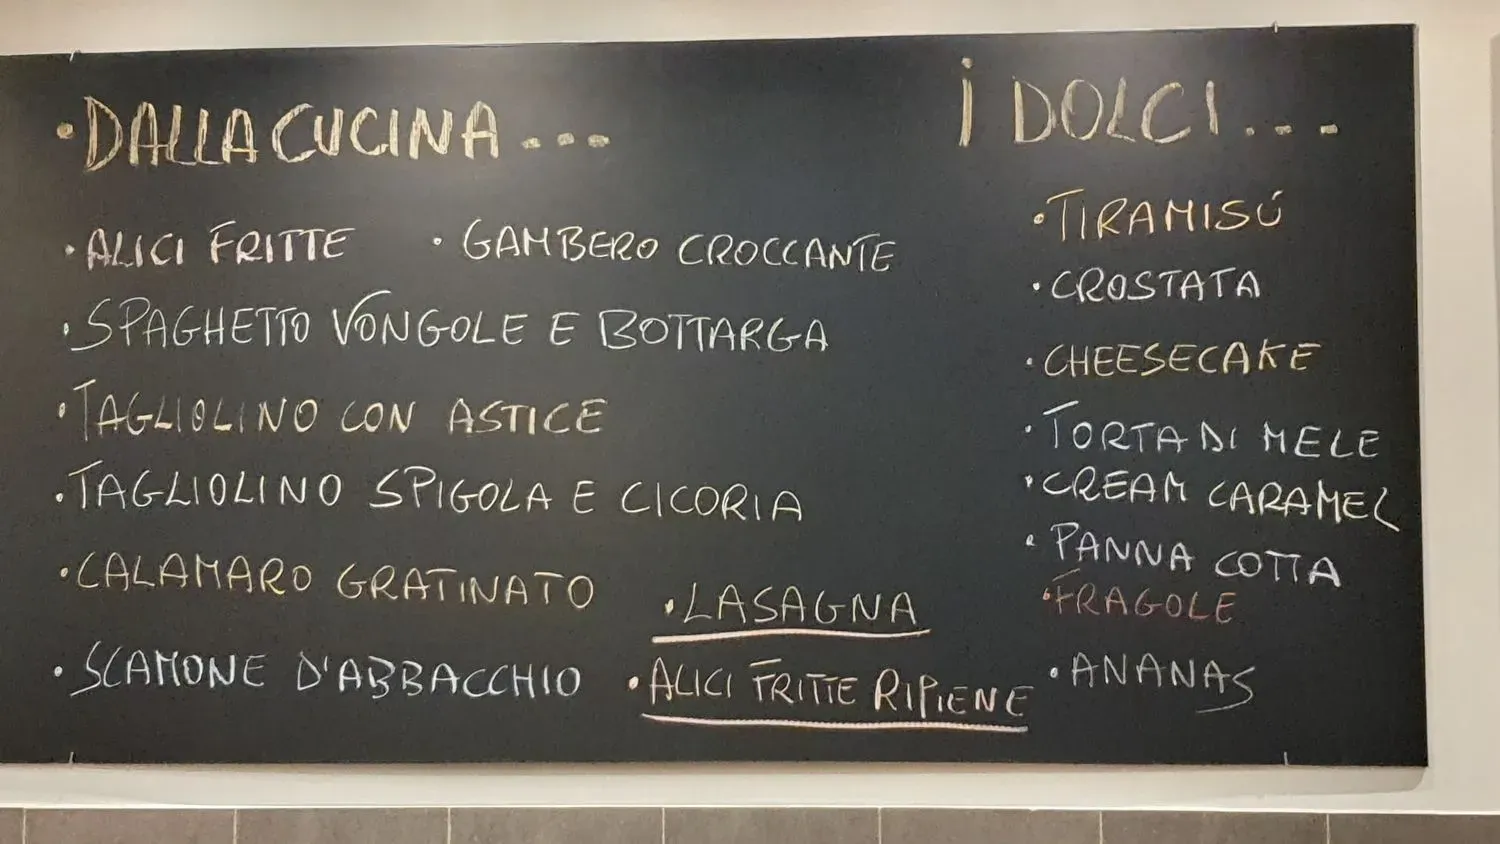 •DALLA CUCINA...
•ALICI FRITTE
•GAMBERO CROCCANTE
•SPAGHETTO VONGOLE E BOTTARGA
•TAGLIOLINO CON ASTICE
•TAGLIOLINO SPIGOLA E CICORIA
•CALAMARO GRATINATO
•LASAGNA
•SCAMONE D'ABBACCHIO
•ALICI FRITTE RIPIENE
I DOLCI...
•TIRAMISÚ
•CROSTATA
•CHEESECAKE
•TORTA DI MELE
•CREAM CARAMEL
•PANNA COTTA
•FRAGOLE
•ANANAS